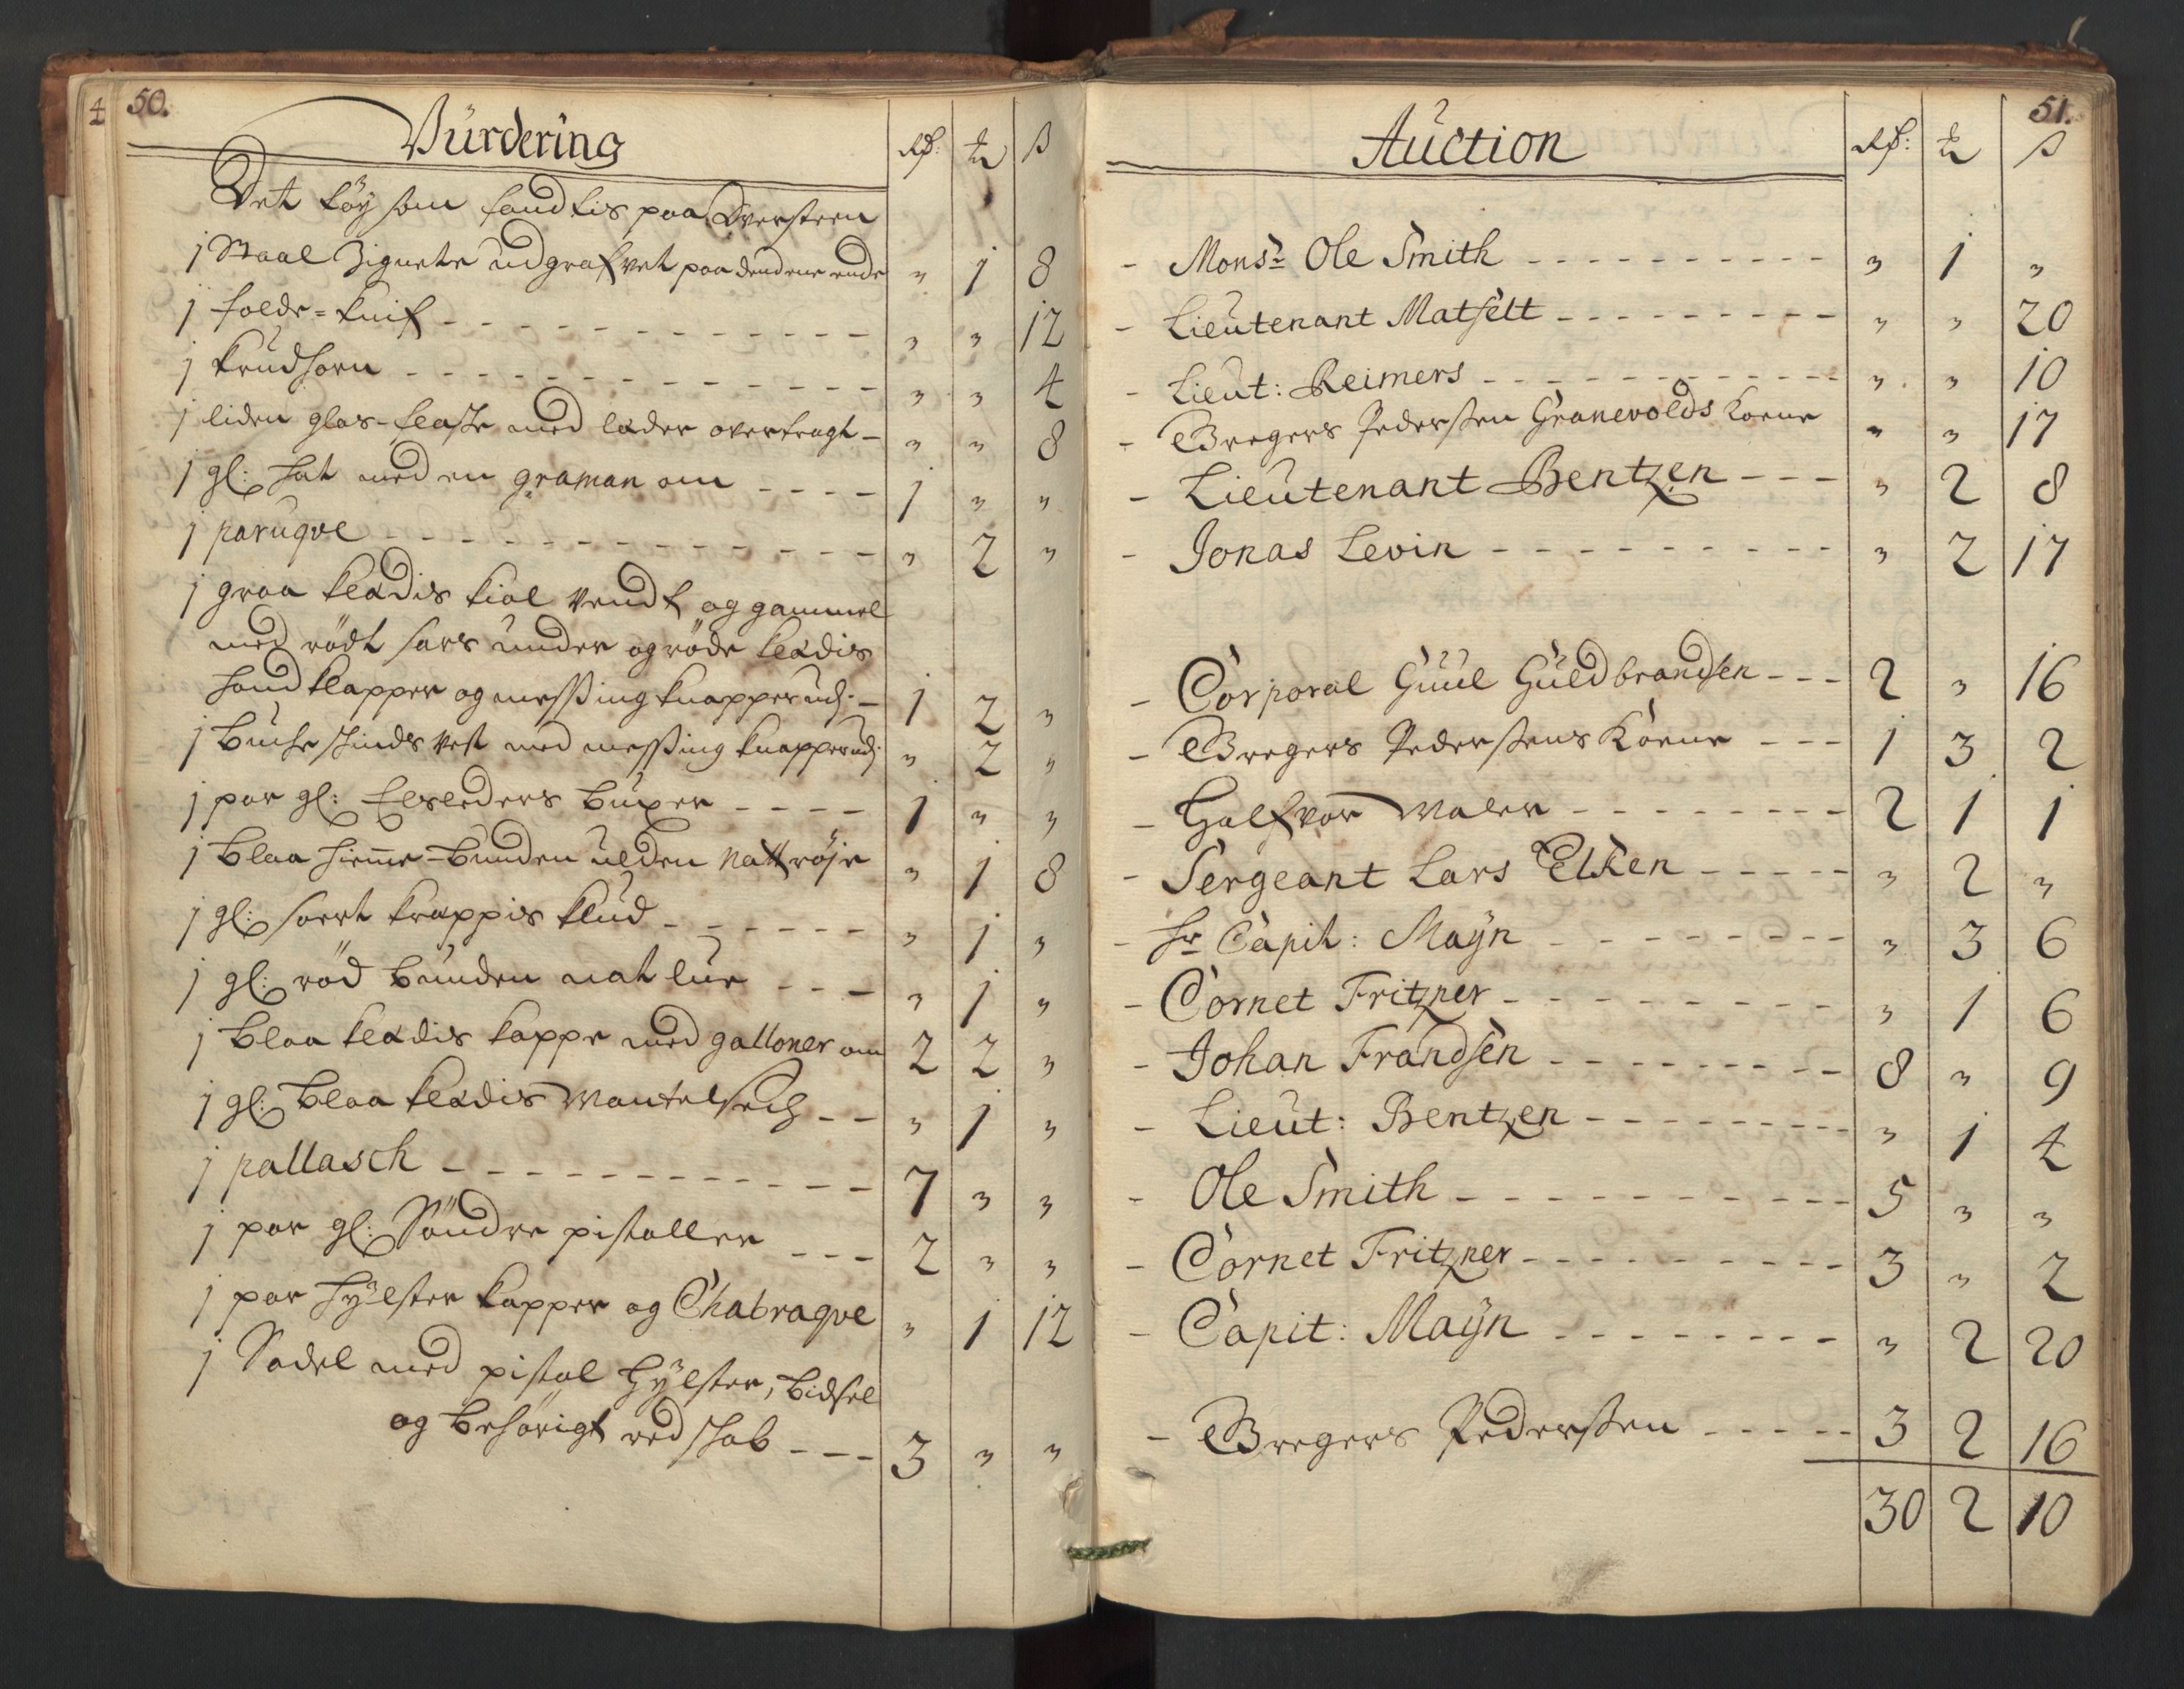 4
50.
Vürdering
Rdr: ort ß
Det töy som fandtis paa Obersteen
1 Staal Zignete udgrafvet paa dend ene ende " 1 8
1 folde=knif " " 12
1 krudhorn " " 4
1 liden glas-flaske med læder overtragt " " 8
1 gl: hat med en graman om 1 " "
1 paruqve " 2 "
1 graa klædis kiol vendt og gammel
med rödt sars under og röde klædis
hand klapper og messing knapper udj 1 2 "
1 Buche skinds vest med messing knapper udj " 2 "
1 par gl: Elsleders Buxer 1 " "
1 blaa hiemme-bunden ulden natt röje " 1 8
1 gl: sort krappis klud " 1 "
1 gl: röd bunden nat lue " 1 "
1 blaa klædis kappe med galloner om 2 2 "
1 gl: blaa klædis Mantelsech " 1 "
1 pallasch 7 " "
1 par gl: Söndre pistoller 2 " "
1 par hylster kapper og Chabraqve " 1 12
1 Sadel med pistol Hylster, bidsel
og behörigt redskab 3 " "
51.
Auction
Rdr: ort ß
- Monsr Ole Smith " 1 "
- Lieutenant Matfelt " " 20
- Lieut: Reimers " " 10
- Bregers Pedersen Granevolds Kone " " 17
- Lieutenant Bentzen " 2 8
- Jonas Levin " 2 17
- Corporal Guul Guldbrandsen 2 " 16
- Bregers Pedersens Kone 1 3 2
- Halfvor Maler 2 1 1
- Sergeant Lars Elken " 2 "
- Hr Capit: Maÿn " 3 6
- Cornet Fritzner " 1 6
- Johan Frandsen 8 " 9
- Lieut: Bentzen " 1 4
- Ole Smith 5 " "
- Cornet Fritzner 3 " 2
- Capit: Maÿn " 2 20
- Bregers Pedersen 3 2 16
30 2 10